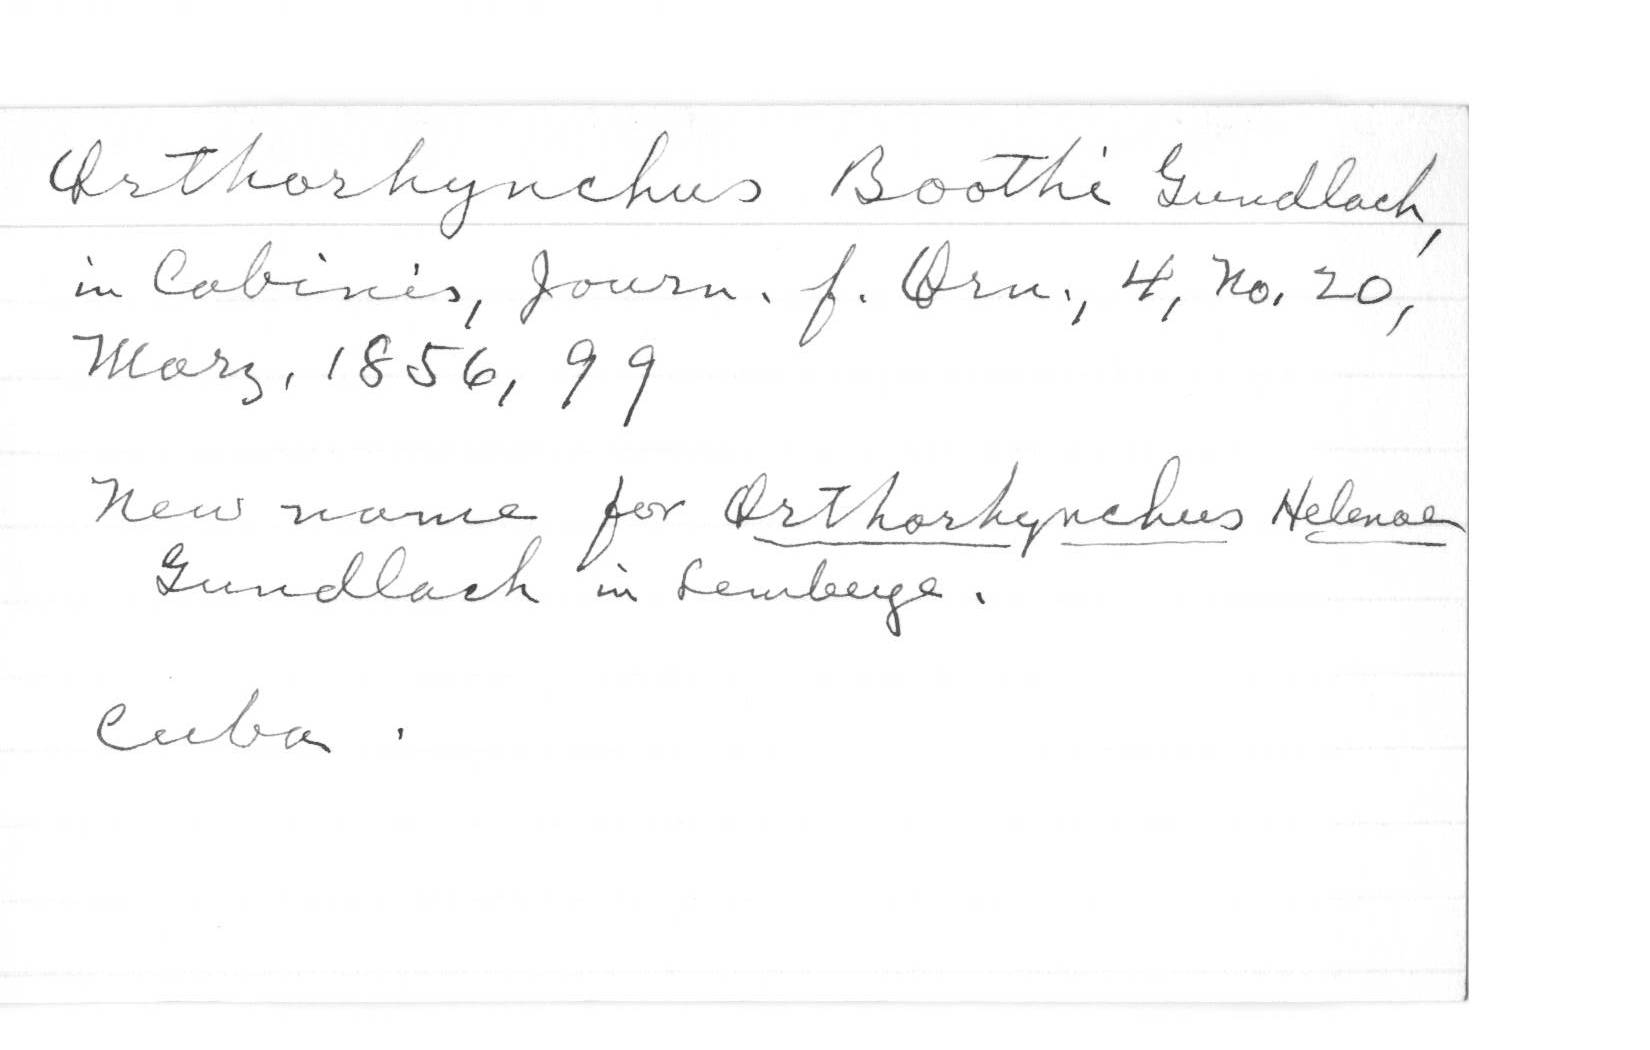 Orthorhynchus Boothi Gundlach,
in Cabinis, Journ. f. Orn., 4, No. 20,
Marz, 1856, 99
New name for Orthorhynchus Helenae
Gundlach in Lembeye.
Cuba.